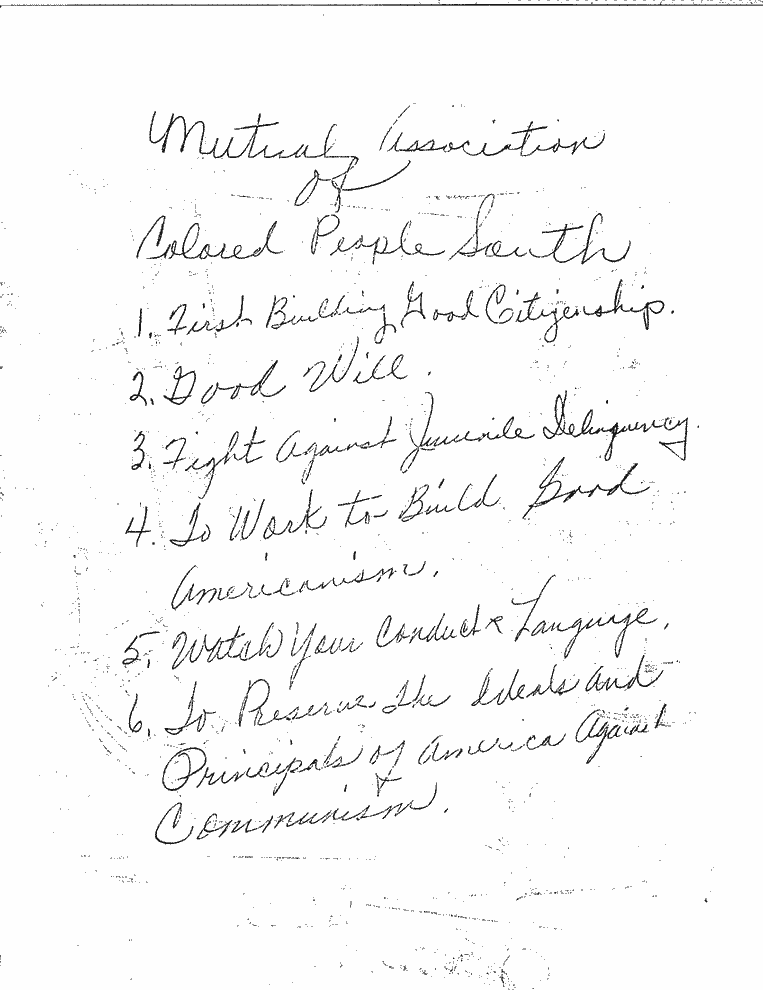 Mutual Association
of
Colored People South
1. First Building Good Citizenship.
2. Good Will.
3. Fight Against Juvenile Delinquency.
4. To Work to Build Good
Americanism.
5. Watch Your Conduct & Language.
6. To Preserve the Ideals and
Principals of America Against
Communism.